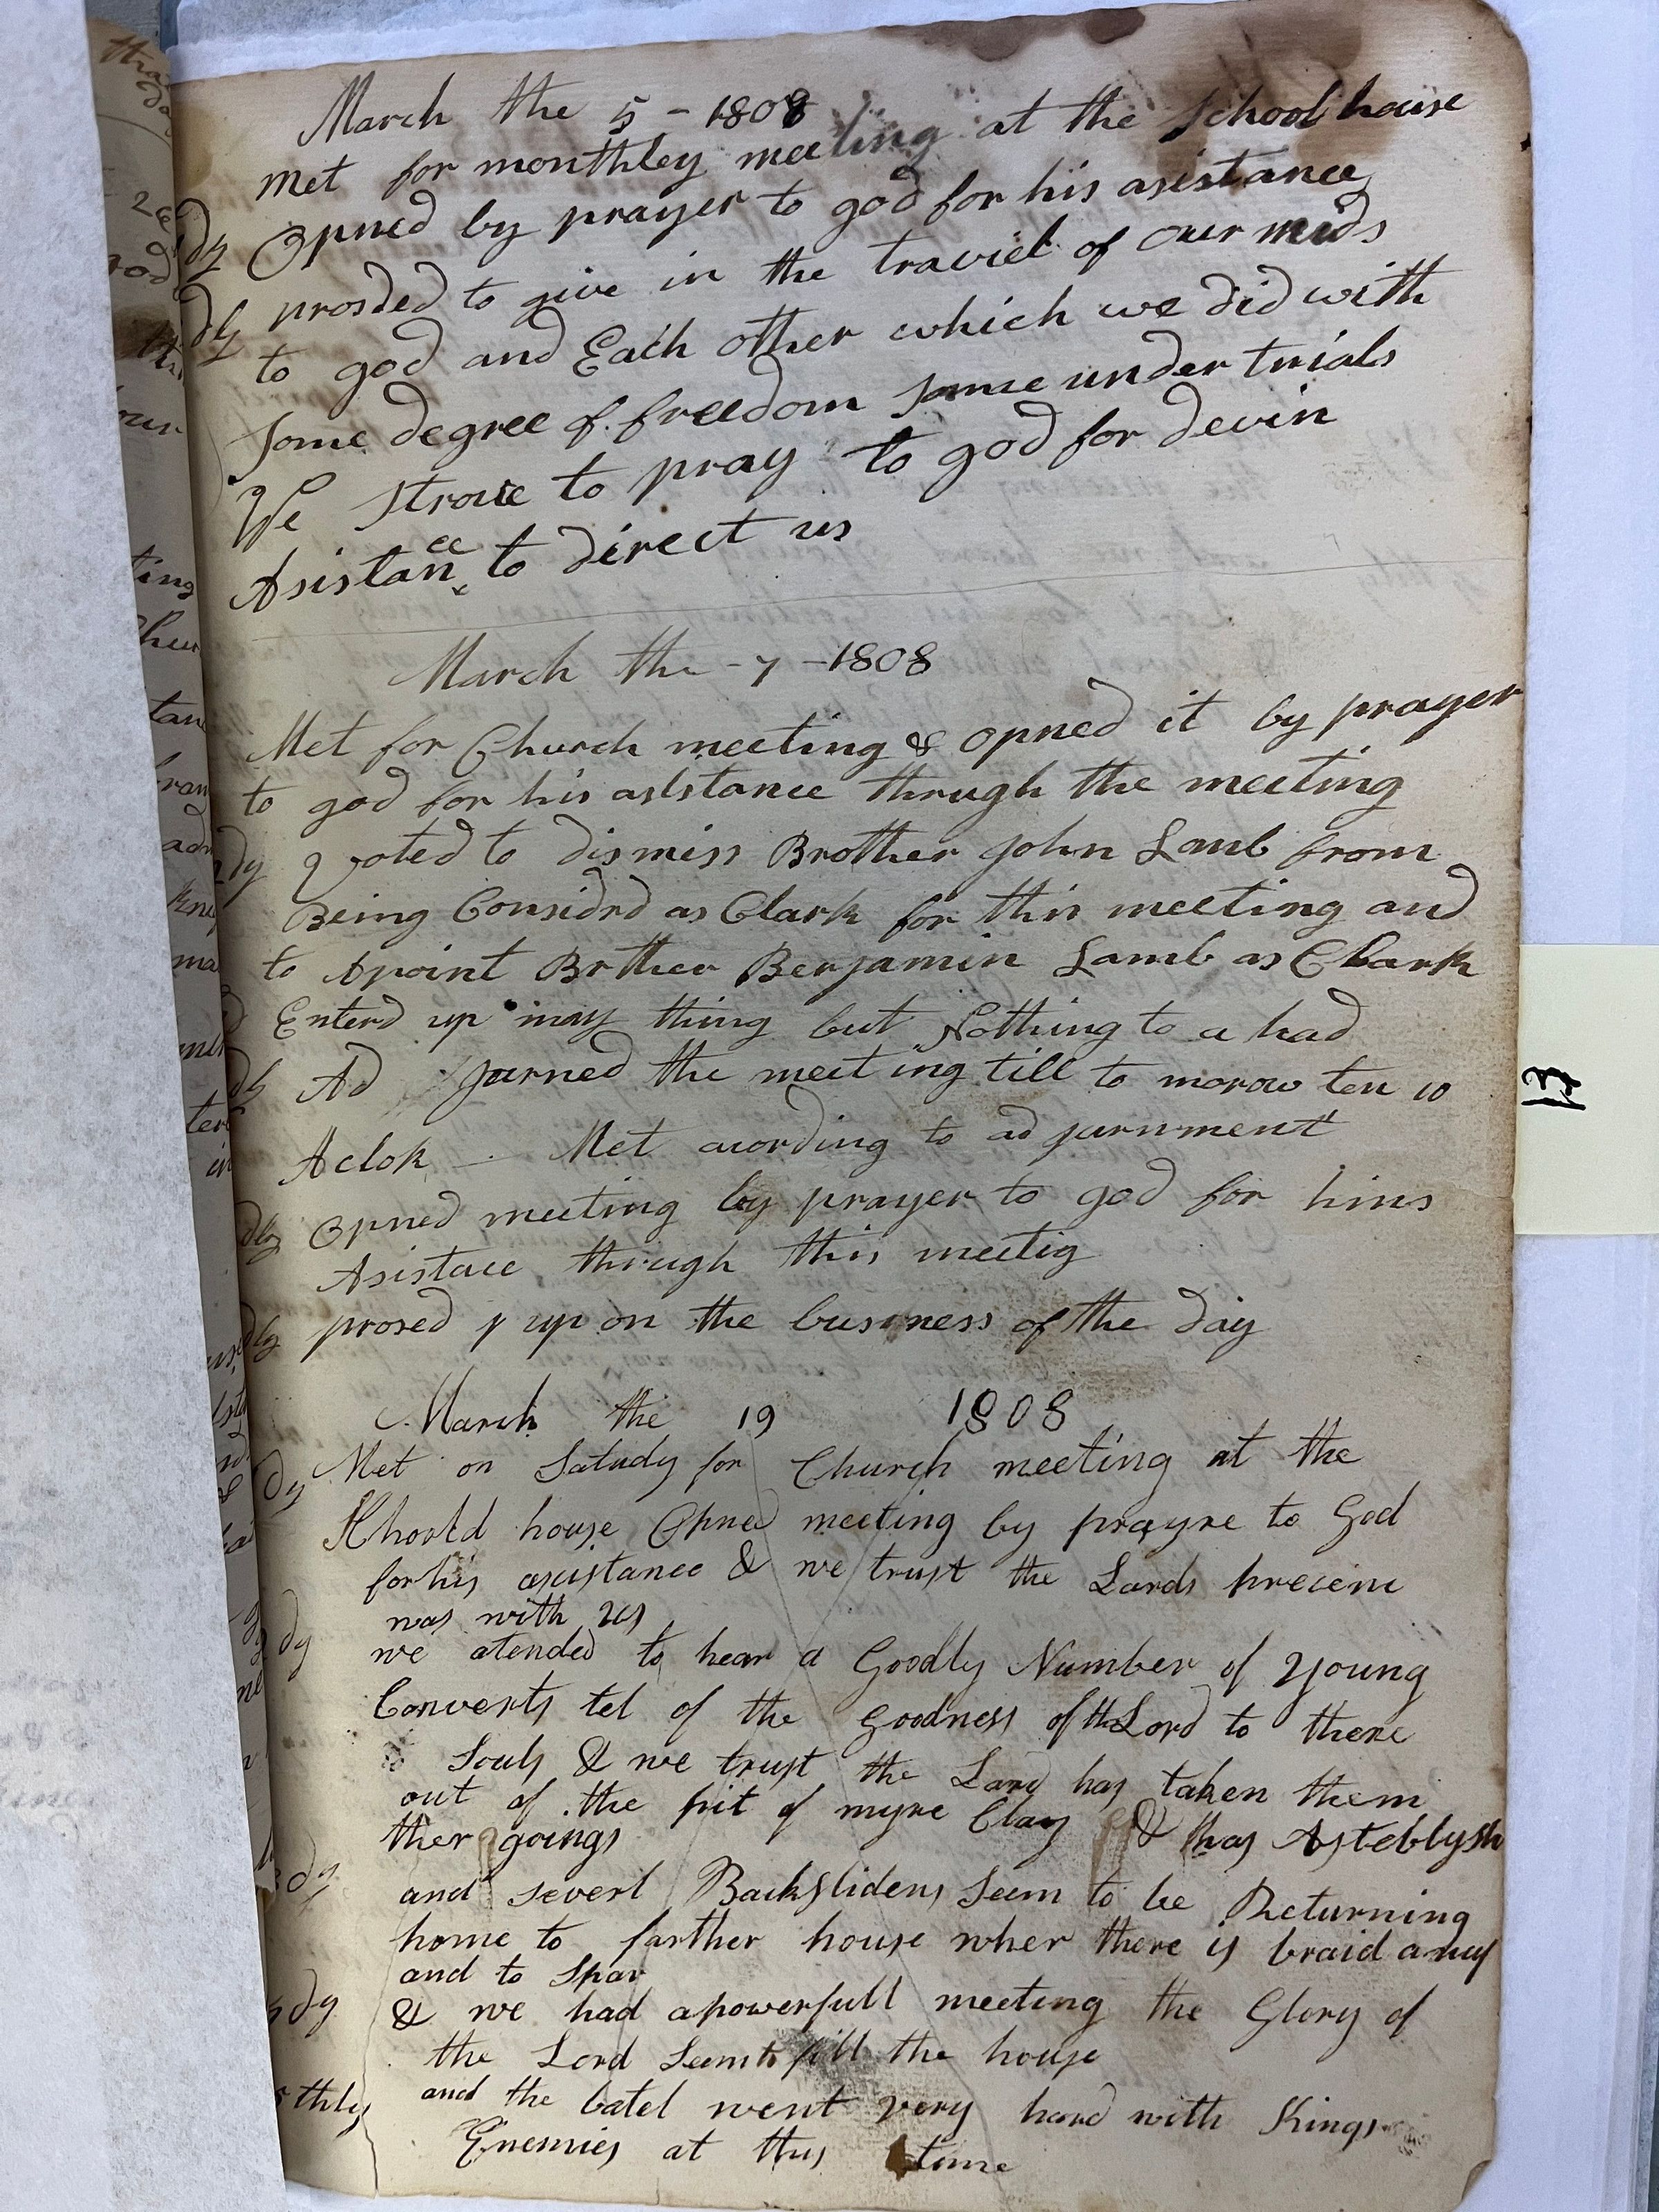 March the 5 - 1808
met for monthley meeting at the School house
1ly Opned by prayer to god for his asistance
2ly prosded to give in the traviel of our mids
to god and Each other which we did with
Some degree of freedom some under trials
We strove to pray to god for devin
Asistance to direct us
March the - 7 - 1808
Met for Church meeting & opned it by prayer
to god for his asistance through the meeting
2dy voted to dismiss Brother John Lamb from
Being Considrd as Clark for this meeting and
to Apoint Brther Benjamin Lamb as Clark
Enterd up may thing but Nothing to a had
Ad jurned the meeting till to morow ten 10
Aclok - Met acording to ad jurnment
opned meeting by prayer to god for hins
Asistace through this meetig
prosed up on the business of the day
March the 19 1808
Met on Satudy for Church meeting at the
house Opned meeting by prayre to God
for his asistance & we trust the Lords presenc
was with us
we atended to hear a Goodly Number of Young
Converts tel of the Goodness of the Lord to there
Souls & we trust the Lard has taken them
out of the pit of myre Clay & has Asteblysh
ther goings
and severl Backslidens seem to be Returning
home to farther house wher there is braid anuf
and to Spar
& we had a powerfull meeting the Glory of
the Lord Seem to fill the house
and the batel went very hard with Kings
Enemies at thus time
13